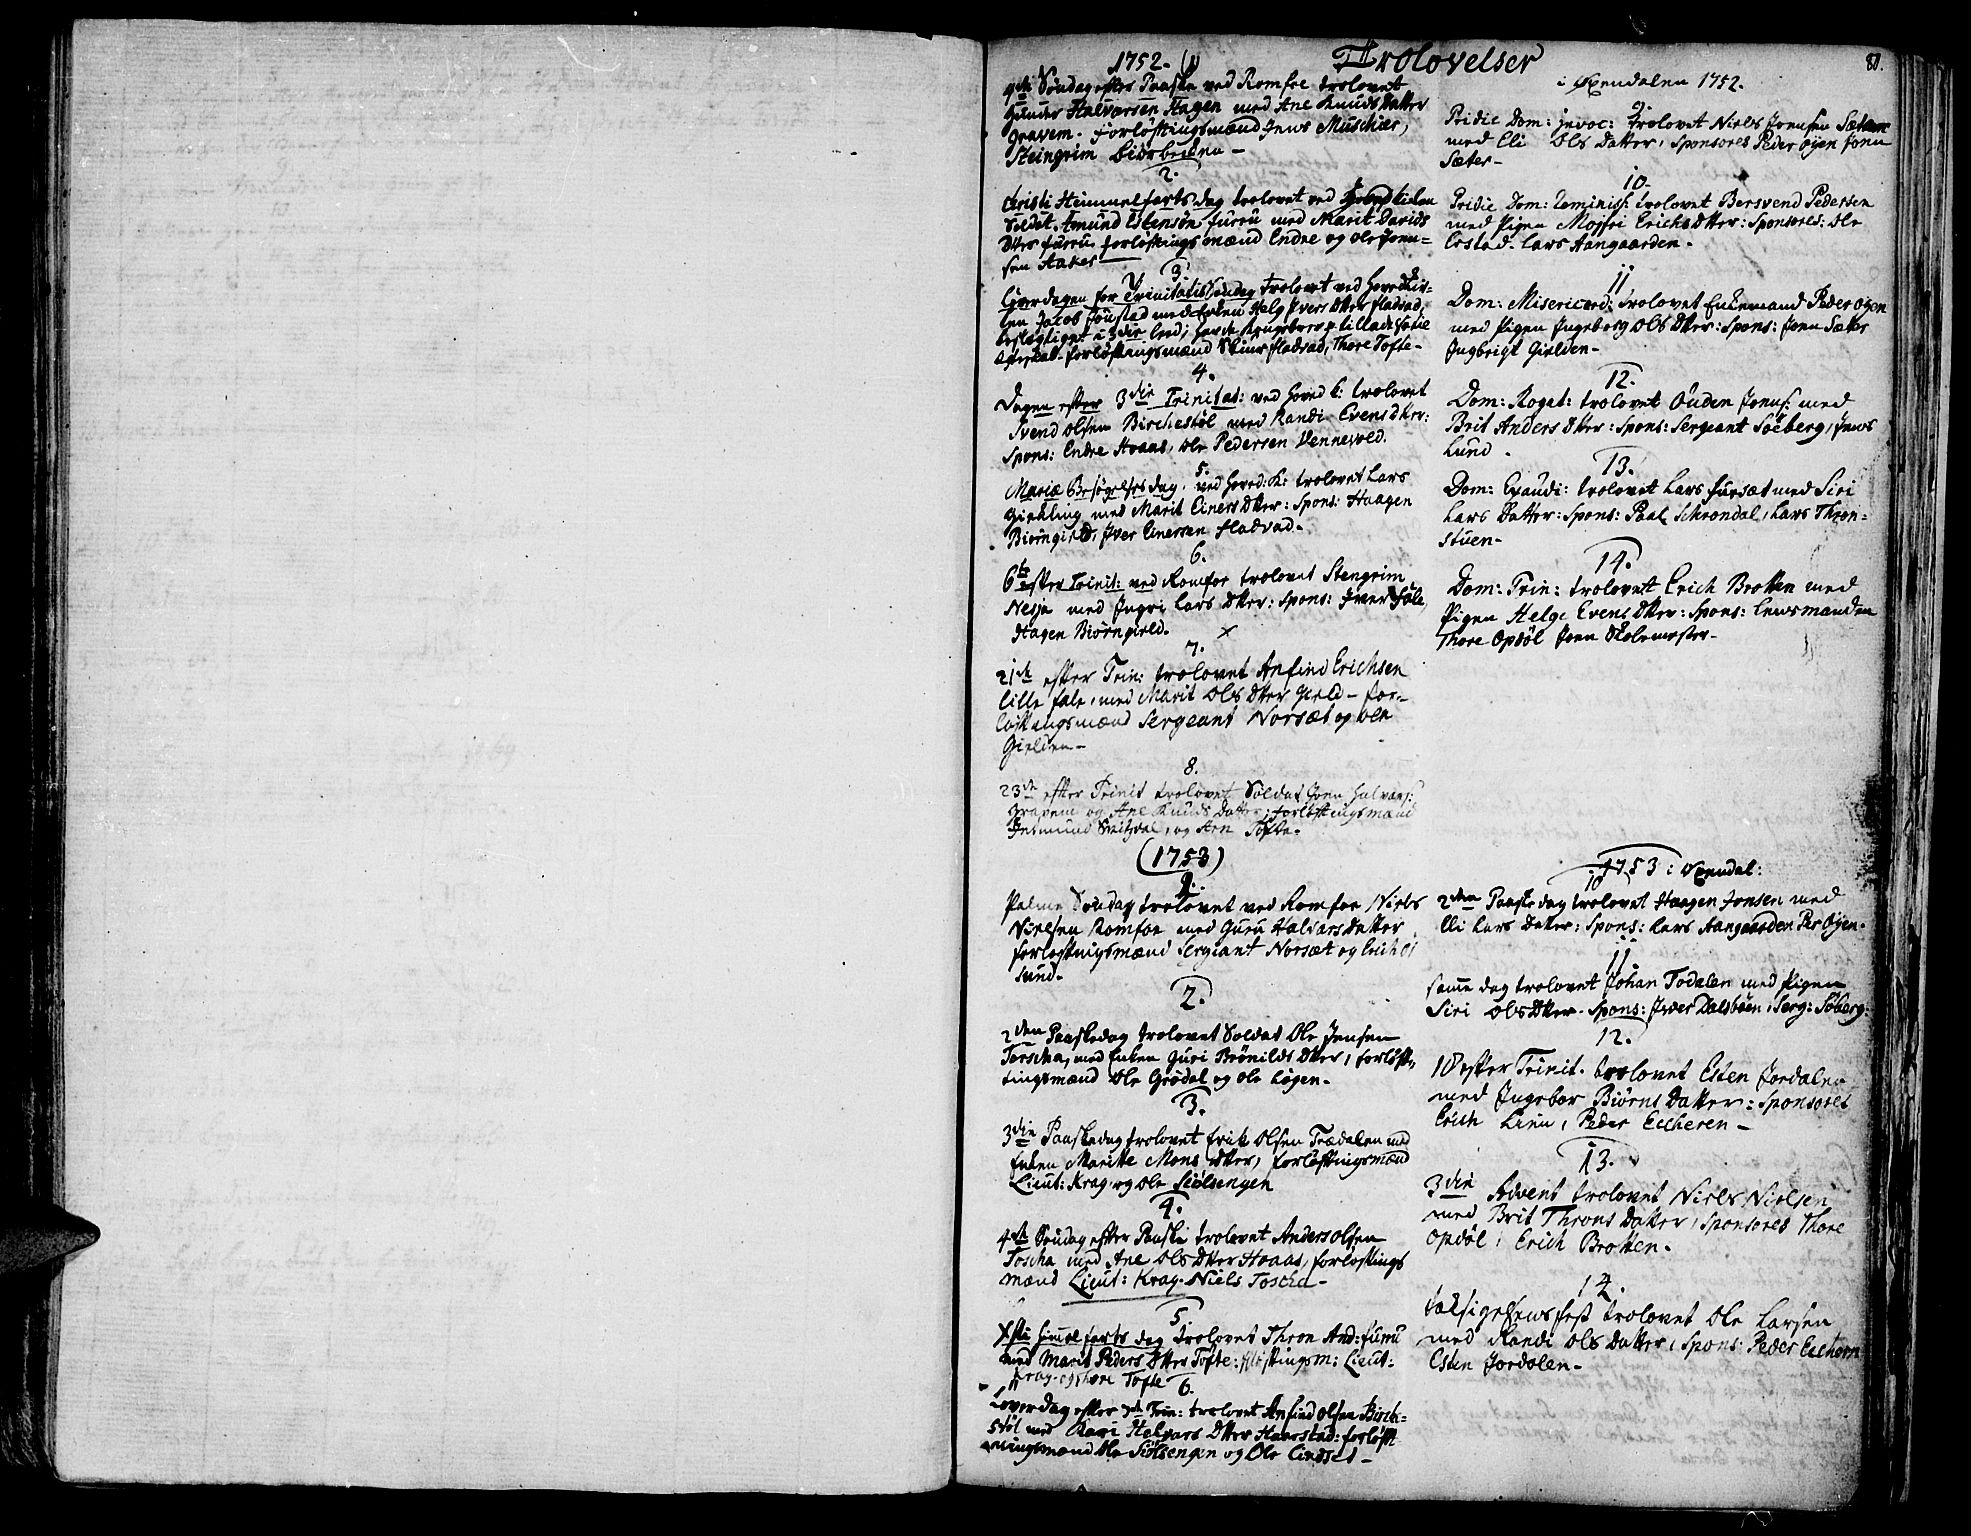 Trolovelser
81.
1752. (1)
4de Søndag efter Paaske ved Romfoe trolovet
Gunder Halvorsen Hagen med Ane Knuds Datter
Gravem. Forløftingsmænd Jens Muschier,
Steingrim
2.
Christi Himmelfarts dag trolovet ved Hovedkirken
Soldat Amund Estensøn Furru med Marit Davids
Dtter Furru, forløftings mænd Endre og Ole Jonn=
sen Aakes
3.
Løverdagen for Trinitatis Søndag trolovet ved Hovedkir-
ken Jacob med Enken Helg Ivers Dtter Hafvad,
beslægtiget i 3die led;
forløftingsmænd Hafvad, Thore Tofte-
4.
Dagen efter 3die Trinitat: ved Hoved k: trolovet
Svend Olsen Birchestøl med Randi Evens Dtter:
Spons: Endre Hoaas, Ole Pedersen Vennevold.
5.
Mariæ Besøgelses dag. ved Hoved: K: trolovet Lars
med Marit Einers Dtter: Spons: Haagen
Biørngield, Iver Einersen Hafvad-
6.
6te efter Trinit: ved Romfoe trolovet Stengrim
Nesja med Ingri Lars Dtter: Spons: Iver Hole,
Hagen Biørngield.
7.
21de efter Trin: trolovet Anfind Erichsen
Lille Fale, med Marit Ols Dtter Gield - for-
løftingsmænd Sergeant Norsæt og Ole
Gielden-
8.
23de efter Trinit trolovet Soldat Joen Halvors:
Gravem og Ane Knuds Datter: forløftingsmænd
og Arn Tofte.
(1753)
1.
Palme Søndag trolovet ved Romfoe Niels
Nielsen Romfoe med Guru Halvars Datter
forløftningsmænd Sergeant Norsæt og Erich
sund-
2.
2den Paaskedag trolovet Soldat Ole Jensen
Torscha, med Enken Guri Brønilds Dtter, forløft-
tingsmænd Ole Grødal og Ole Løgen-
3.
3die Paaskedag trolovet Erik Olsen Trædalen med
Enken Maritte Mons dtter, forløftingsmænd
Lieut: Krag og Ole Siølsengen
4.
4de Søndag efter Paaske trolovet Anders Olsen
Toscha med Ane Ols Dtter Hoaas, forløftings
mænd Lieut: Krag- Niels Toscha-
5.
Xsti Himelfarts dag trolovet Thron And: Furru
med Marit Peders Dtter Tofte: fløftingsm: Lieut:
Krag- og Thore Tofte
6.
Løverdag efter 7de Trin: trolovet Anfind Olsen Birch=
støl med Kari Halvars Dtter Haarstad: forløft-
ningsmænd Ole Siølsengen og Ole Lindset-
i Øxendalen 1752.
9.
Pridie Dom: Invoc: Trolovet Niels Jonnsen Sæter
med Eli Ols Datter, Sponsores Peder Øyen Jonn
Sæter-
10.
Pridie Dom: Reminisc: trolovet Bersvend Pedersen
med Pigen Mogfri Erichs Dtter: Sponsores: Ole
Erstad. Lars Aangaarden-
11.
Dom: Misericord: Trolovet Enkemand Peder Øyen
med Pigen Ingeborg Ols Dtter: Spons: Jonn Sæter
Ingbrigt Gielden-
12.
Dom: Rogat: trolovet Ouden Jonns: med
Brit Anders Dtter: Spons: Sergeant Søeberg, Jens
Lund.
13.
Dom: Exaudi: trolovet Lars Fursæt med Siri
Lars Datter: Spons: Paal Schrondal, Lars Thron=
stuen-
14.
Dom: Trin: trolovet Erich Brotten med
Pigen Helge Evens Dtter: Spons: Lensmanden
Thore Opdøl Jonn Skolemester-
1753 i Øxendal:
10
2den Paaskedag trolovet Haagen Jonsen med
Eli Lars Datter: Spons: Lars Aangaarden Per Øyen-
11.
samme dag trolovet Johan Todalen med Pigen
Siri Ols Dtter- Spons: Peder Dalsbøen, Serg: Søberg.
12.
10 efter Trinit. trolovet Esten Jordalen
med Ingebor Biørns Datter: Sponsores
Erich Lien, Peder Eccheren-
13.
3die Advent trolovet Niels Nielsen
med Brit Throns Datter, Sponsores Thore
Opdøl, Erich Brotten.
14.
Taksigelsens fest trolovet Ole Larsen
med Randi Ols Datter, Spons: Peder Eccheren
Esten Jordalen-